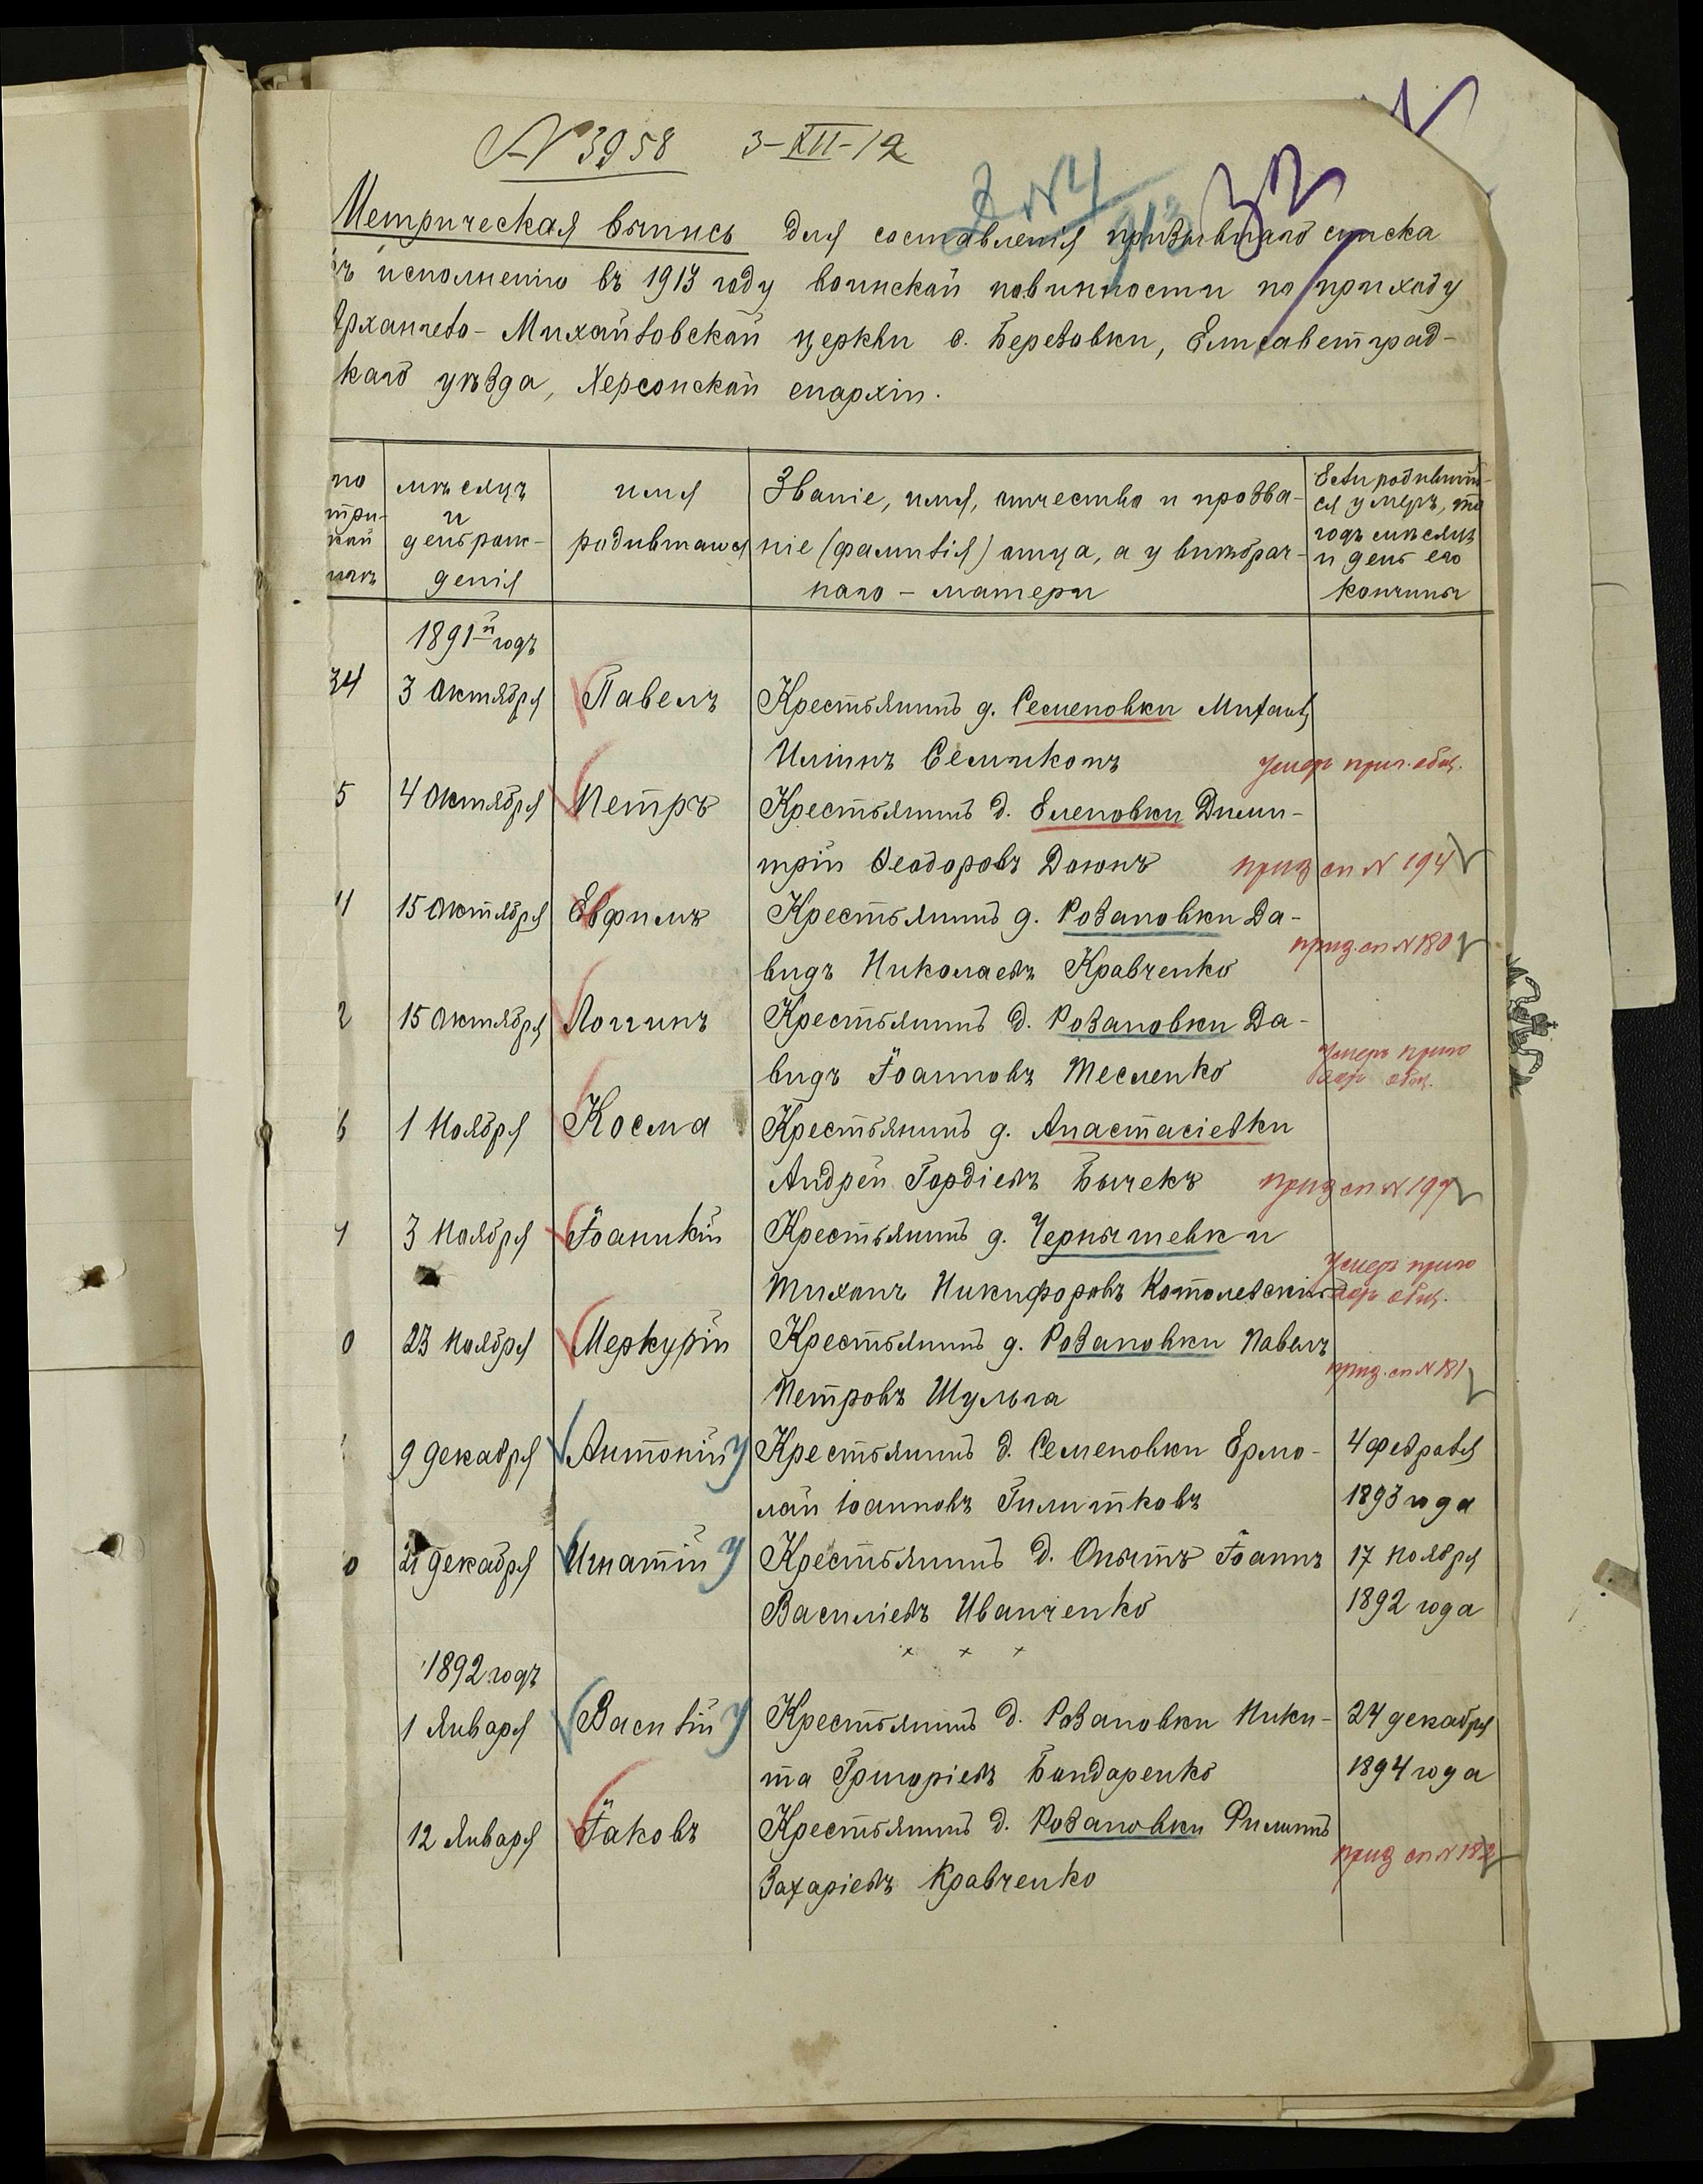 № 3958 3-XII-12
Метрическая выпись для составленія призывнаго списка
къ исполненію въ 1913 году воинской повинности по приходу
Архангело-Михайловской церкви с. Березовки, Елисаветград-
скаго уѣзда, Херсонской епархіи.
по
мѣсяцъ
и
день рож-
денія
имя
родившагося
Званіе, имя, отчество и прозва-
ніе (фамилія) отца, а у внѣбрач-
наго - матери
Если родившій-
ся умеръ, то
годъ мѣсяцъ
и день его
кончины
1891й годъ
34 3 Октября Павелъ Крестьянинъ д. Семеновки Михаилъ
Иліинъ Семиконъ Умеръ приг. общ.
5 4 Октября Петръ Крестьянинъ д. Еленовки Дими-
трій Ѳеодоровъ приз сп № 194
11 15 Октября Евфимъ Крестьянинъ д. Розановки Да-
видъ Николаевъ Кравченко приз. сп № 180
2 15 Октября Логгинъ Крестьянинъ д. Розановки Да-
видъ Іоанновъ Тесленко Умеръ приго
вор общ.
6 1 Ноября Косма Крестьянинъ д. Анастасіевки
Андрей Гордіевъ Бычекъ приз сп № 197
3 Ноября Іоанникій Крестьянинъ д. Чернышевки
Тихонъ Никифоровъ Умеръ приго
вор общ.
0 23 Ноября Меркурій Крестьянинъ д. Розановки Павелъ
Петровъ Шульга приз. сп № 181
9 декабря Антоній У Крестьянинъ д. Семеновки Ермо- 4 февраля
лай Іоанновъ 1893 года
0 21 декабря Игнатій У Крестьянинъ д. Опытъ Іоаннъ 17 Ноября
Василіевъ Иванченко 1892 года
× × ×
1892 годъ
1 Января Василій У Крестьянинъ д. Розановки Ники- 24 декабря
та Григоріевъ Бондаренко 1894 года
12 Января Іаковъ Крестьянинъ д. Розановки Филиппъ
Захаріевъ Кравченко приз сп № 182